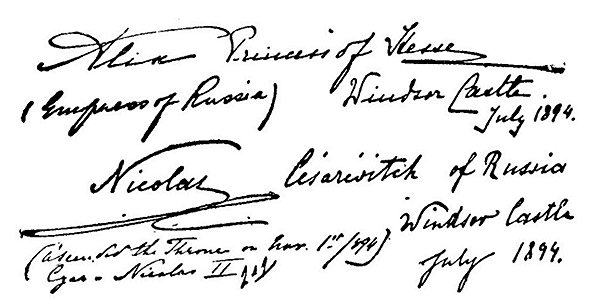 Alix Princess of Hesse
(Empress of Russia) Windsor Castle.
July 1894.
Nicolas Césarivitch of Russia
Windsor Castle
July 1894.
(Ascended the Throne on Nov. 1st/1894)
Czar - Nicolas II